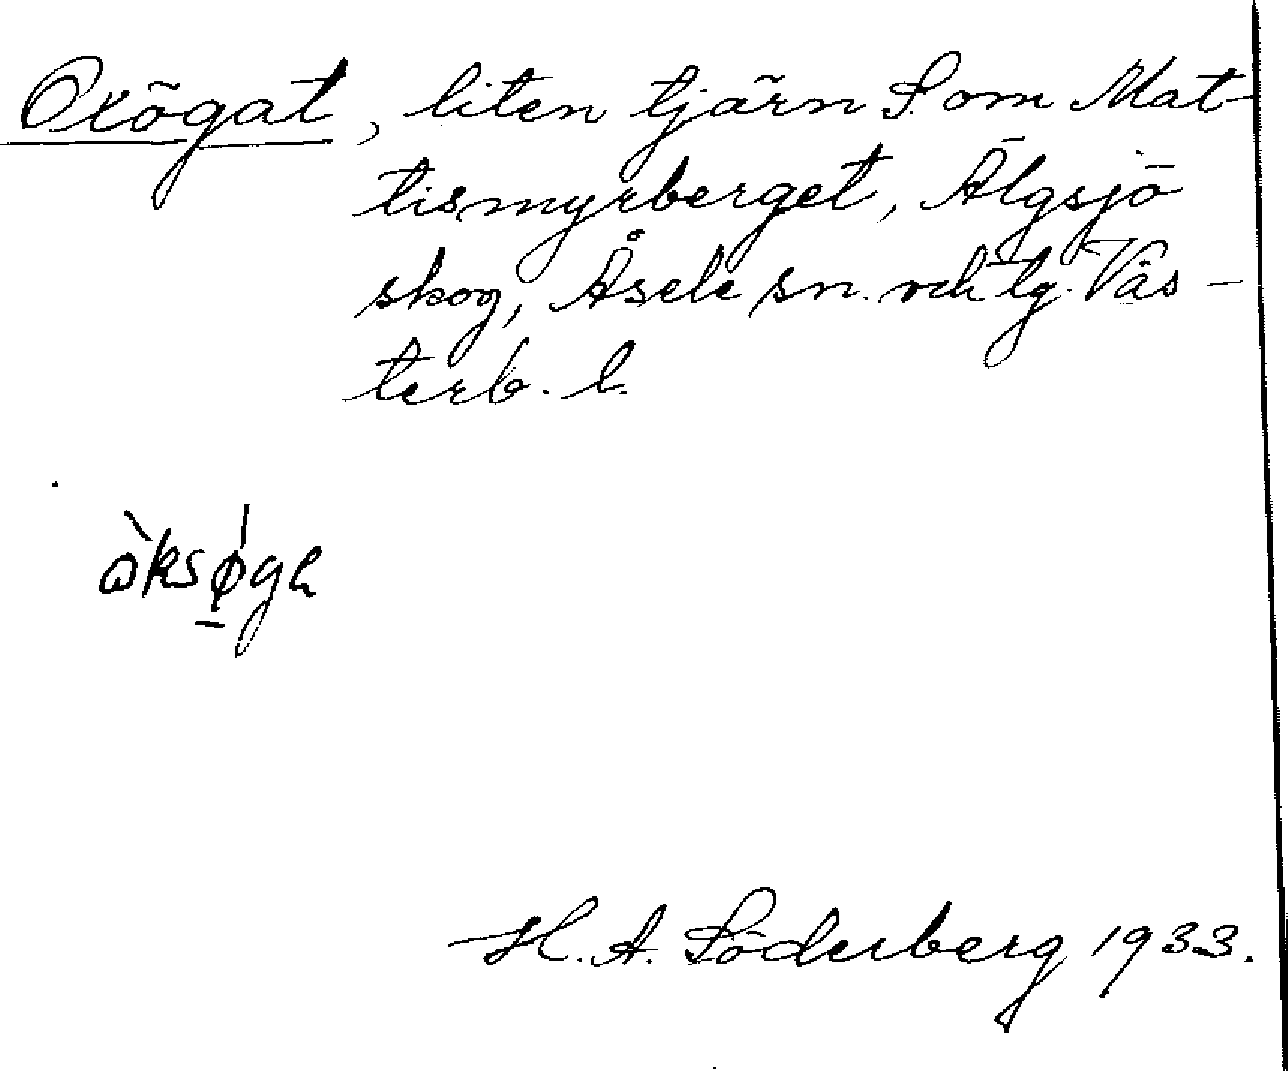 Oxögat, liten tjärn S. om Mat-
tismyrberget, Älgsjö
skog, Åsele sn. och lg. Väs-
terb. l.
H. A. Söderberg 1933.